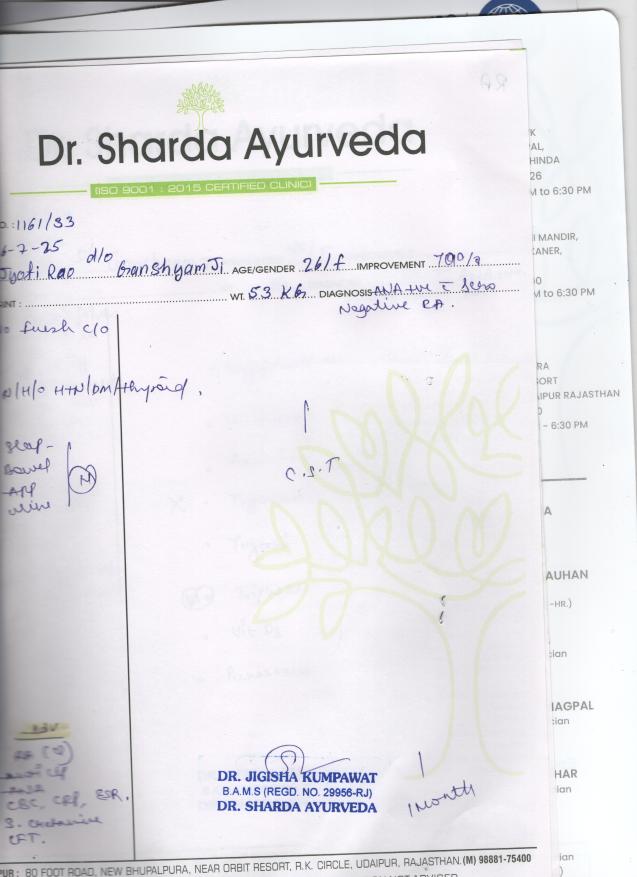 Dr. Sharda Ayurveda
(ISO 9001 : 2015 CERTIFIED CLINIC)
O. : 1161/33
6-7-25
Jyoti Rao d/o GanshyamJi AGE/GENDER 26/f IMPROVEMENT 70%
INT : WT. 53 KG DIAGNOSIS ANA +ve c̄ Sero
Negative RA.
fresh c/o
N/H/O HTN/DM/thyroid.
C.S.T
Bowel
App
urine
N
RA
CBC, CRP, ESR.
S. Creatinine
LFT.
DR. JIGISHA KUMPAWAT
B.A.M.S (REGD. NO. 29956-RJ)
DR. SHARDA AYURVEDA
1 Month
PUR : 80 FOOT ROAD, NEW BHUPALPURA, NEAR ORBIT RESORT, R.K. CIRCLE, UDAIPUR, RAJASTHAN. (M) 98881-75400
K
PAL,
HINDA
26
M to 6:30 PM
I MANDIR,
KANER,
00
M to 6:30 PM
RA
SORT
AIPUR RAJASTHAN
0
- 6:30 PM
A
AUHAN
-HR.)
cian
NAGPAL
cian
HAR
ian
ian